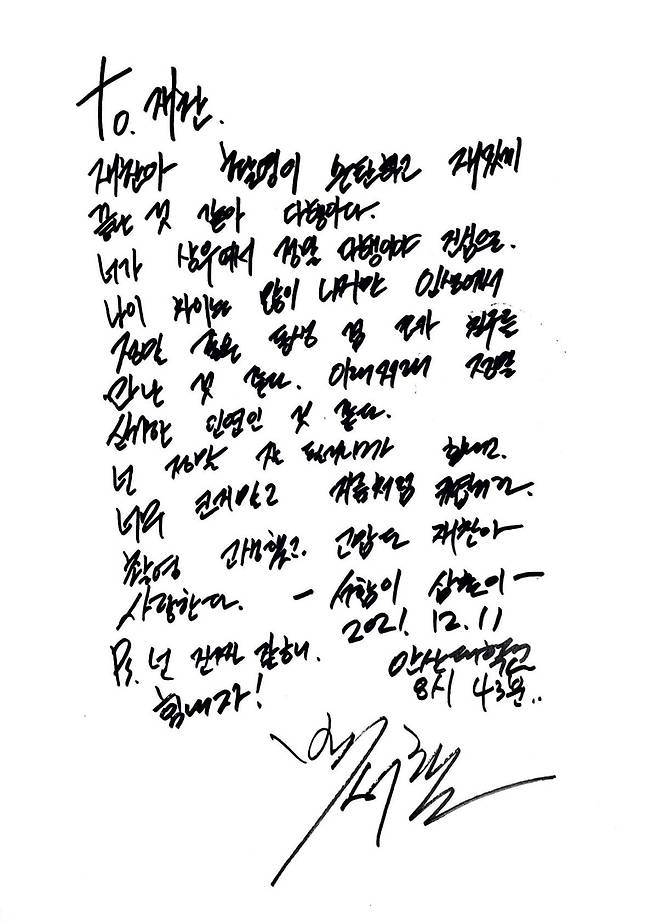 To. 재찬.
재찬아 촬영이 순탄하고 재밌게
끝난 것 같아 다행이다.
너가 상우여서 정말 다행이야 진심으로.
나이 차이는 많이 나지만 인생에서
정말 좋은 동생 겸 친구를
만난 것 같다. 이래저래 정말
신기한 인연인 것 같다.
넌 정말 잘 될거니까 힘내고.
너무 크지말고 지금처럼 귀엽거라.
촬영 고생했고. 고맙다 재찬아
사랑한다. - 서함이 삼촌이 -
2021. 12. 11
Ps. 넌 진짜 잘하니. 안산대학교
힘내자! 8시 43분..
박서함